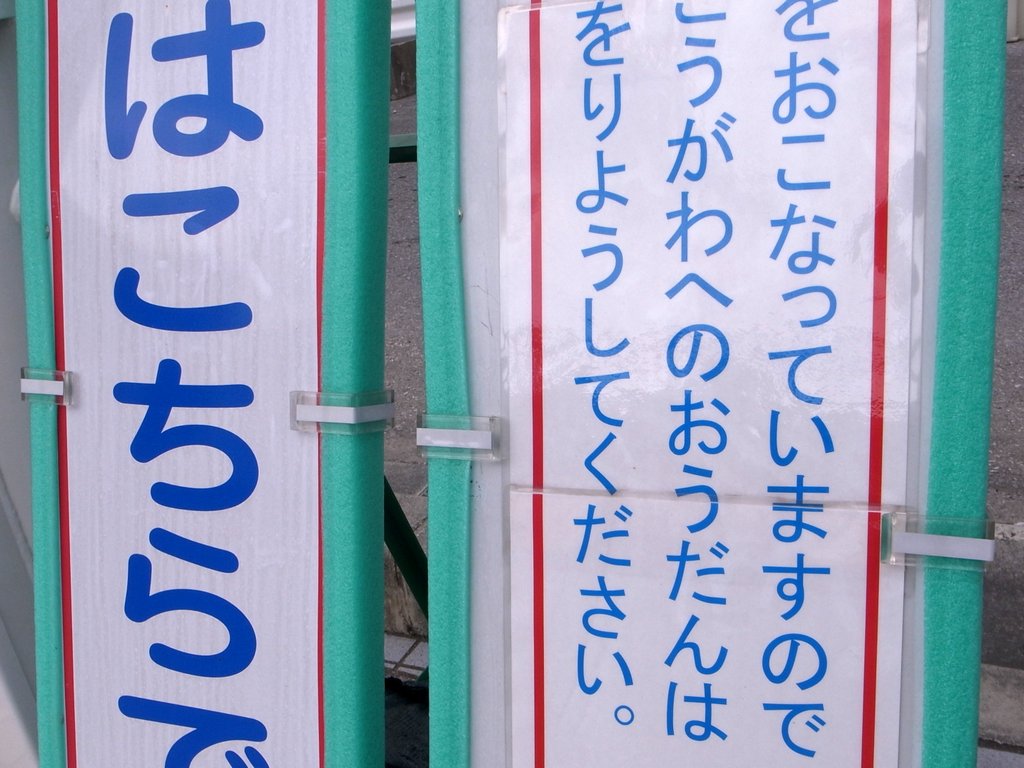 をおこなっていますので
こうがわへのおうだんは
をりようしてください。
はこちらで